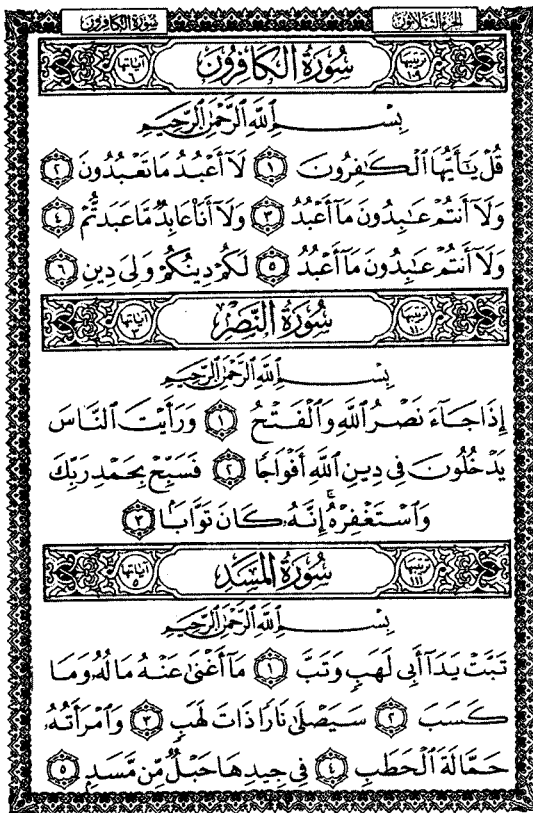 سُورَةُ الكَافِرُون الجُزْءُ الثَّلَاثُونَ
ترتيبها ١٠٩ سُورَةُ الكَافِرُون آياتها ٦
بِسْمِ ٱللَّهِ ٱلرَّحْمَٰنِ ٱلرَّحِيمِ
قُلْ يَٰٓأَيُّهَا ٱلْكَٰفِرُونَ ١ لَآ أَعْبُدُ مَا تَعْبُدُونَ ٢
وَلَآ أَنتُمْ عَٰبِدُونَ مَآ أَعْبُدُ ٣ وَلَآ أَنَا۠ عَابِدٌ مَّا عَبَدتُّمْ ٤
وَلَآ أَنتُمْ عَٰبِدُونَ مَآ أَعْبُدُ ٥ لَكُمْ دِينُكُمْ وَلِىَ دِينِ ٦
ترتيبها ١١٠ سُورَةُ النَّصْرِ آياتها ٣
بِسْمِ ٱللَّهِ ٱلرَّحْمَٰنِ ٱلرَّحِيمِ
إِذَا جَآءَ نَصْرُ ٱللَّهِ وَٱلْفَتْحُ ١ وَرَأَيْتَ ٱلنَّاسَ
يَدْخُلُونَ فِى دِينِ ٱللَّهِ أَفْوَاجًا ٢ فَسَبِّحْ بِحَمْدِ رَبِّكَ
وَٱسْتَغْفِرْهُ ۚ إِنَّهُۥ كَانَ تَوَّابًۢا ٣
ترتيبها ١١١ سُورَةُ المَسَدِ آياتها ٥
بِسْمِ ٱللَّهِ ٱلرَّحْمَٰنِ ٱلرَّحِيمِ
تَبَّتْ يَدَآ أَبِى لَهَبٍ وَتَبَّ ١ مَآ أَغْنَىٰ عَنْهُ مَالُهُۥ وَمَا
كَسَبَ ٢ سَيَصْلَىٰ نَارًا ذَاتَ لَهَبٍ ٣ وَٱمْرَأَتُهُۥ
حَمَّالَةَ ٱلْحَطَبِ ٤ فِى جِيدِهَا حَبْلٌ مِّن مَّسَدٍۭ ٥